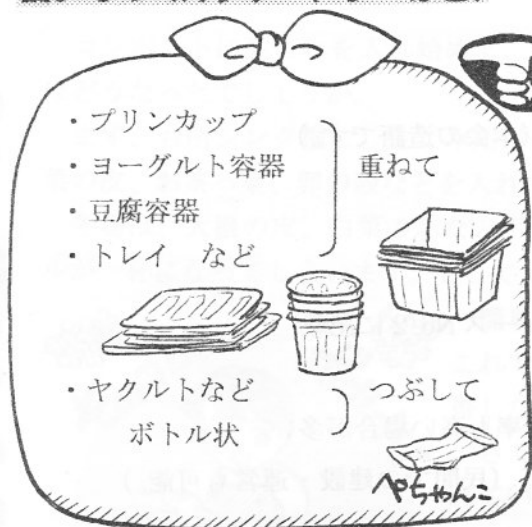 ・プリンカップ
・ヨーグルト容器
・豆腐容器
・トレイ など
重ねて
・ヤクルトなど
ボトル状
つぶして
ぺちゃんこ